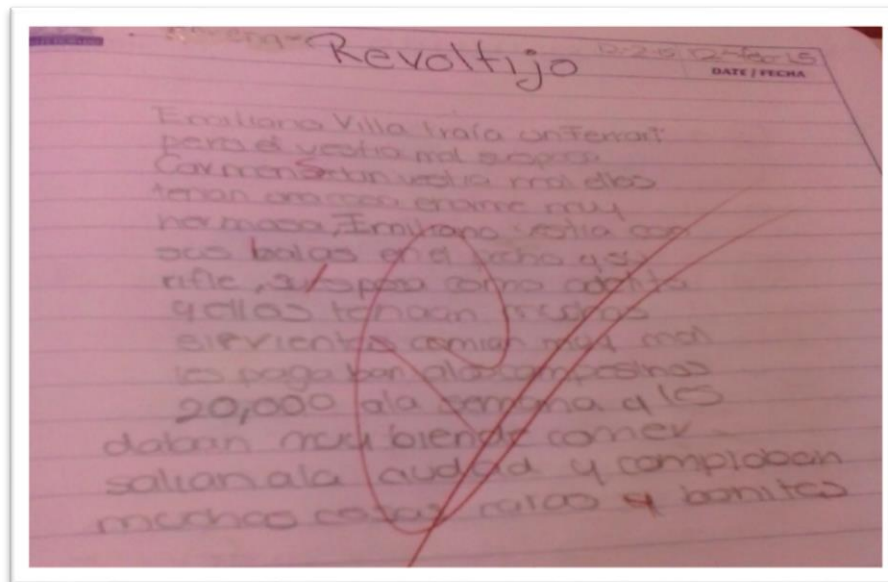 Revoltijo
DATE / FECHA
Emiliano Villa traía un Ferrari
pero el vestia mal su esposa
Carmen vestia mal ellos
tenian una casa enorme muy
hermosa, Emiliano vestia con
sus balas en el pecho y su
rifle, su esposa como adelita
y ellos
sirvientes comian muy mal
les pagaban ala campesinos
20,000 ala semana y les
daban muy bien de comer
salian ala ciudad y compraban
muchas cosas raras y bonitas